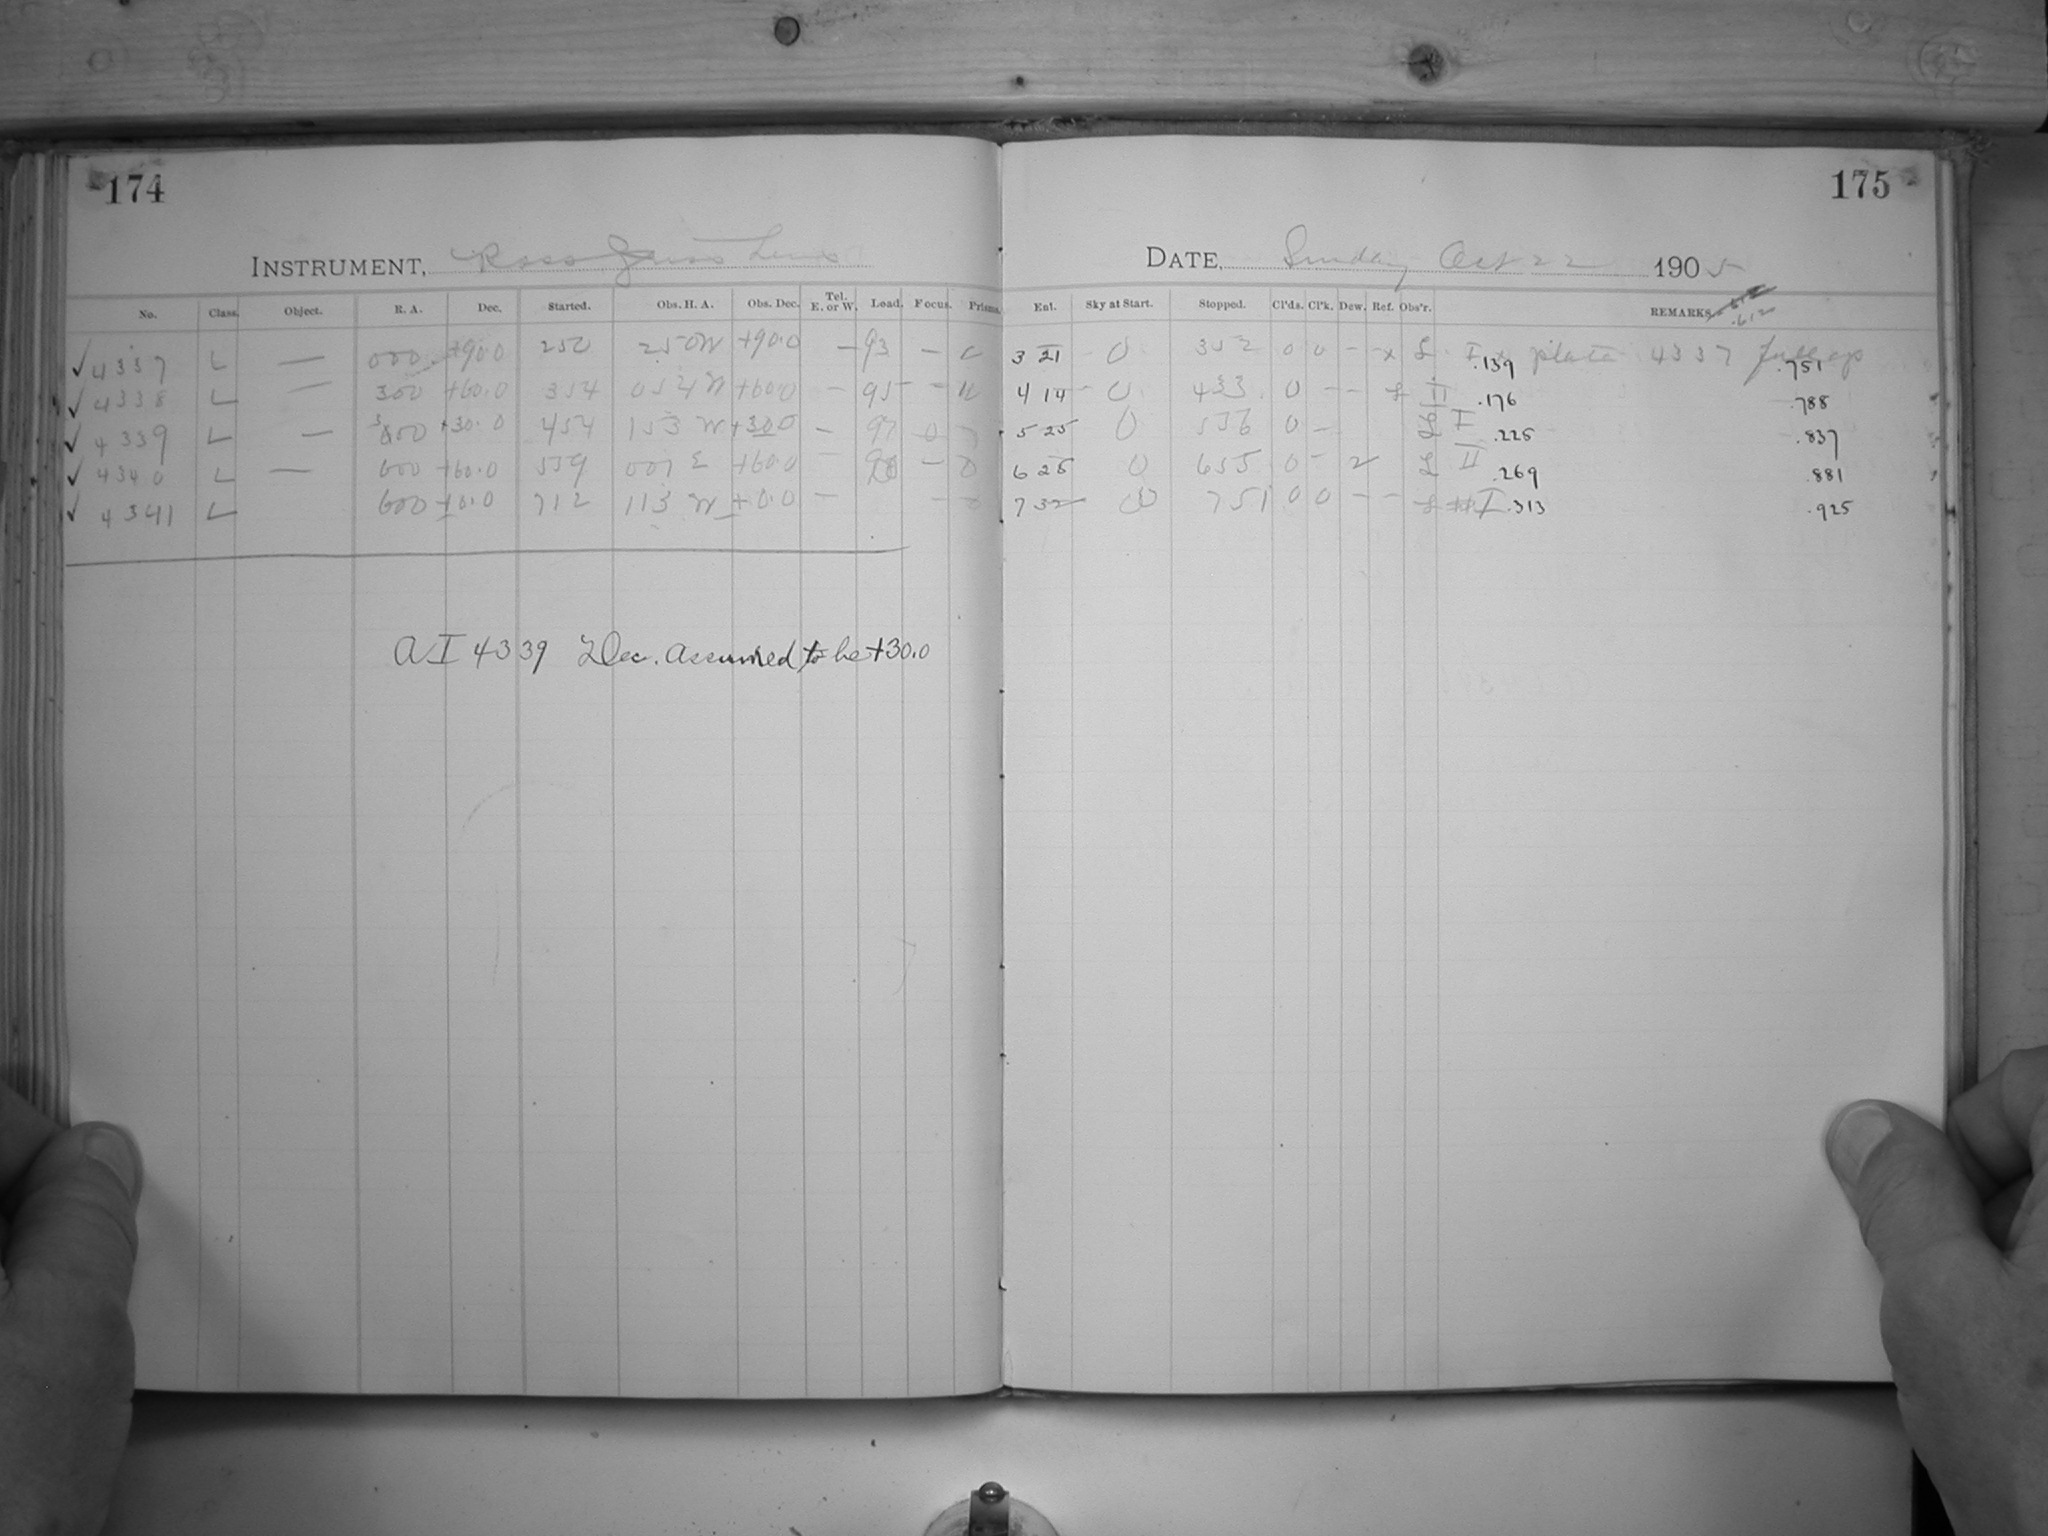 174
175
INSTRUMENT, Ross Lens
DATE, Sunday Oct 22 1905
No. Class. Object. R. A. Dec. Started. Obs. H. A. Obs. Dec. Tel. E. or W. Load. Focus. Prisms. Ent. Sky at Start. Stopped. Cl'ds. Cl'k. Dew. Ref. Obs'r. REMARKS
.612
✓ 4337 L — 000 +90.0 250 250W +90.0 — 93 — 3 21 0 352 0 0 - - x L I x plate 4337 full .139 .751
✓ 4338 L — 300 +60.0 354 054W +60.0 — 95 - 4 14 0 433 0 - - L II .176 .788
✓ 4339 L — 300 +30.0 454 153 W +30.0 — 97 0 5 25 0 556 0 - L I .225 .837
✓ 4340 L — 600 +60.0 559 001 E +60.0 - - 6 25 0 655 0 - 2 L II .269 .881
✓ 4341 L 600 +0.0 712 113 W +0.0 — - 7 32 0 751 0 0 - - L I .313 .925
A I 4339 Dec. assumed to be +30.0